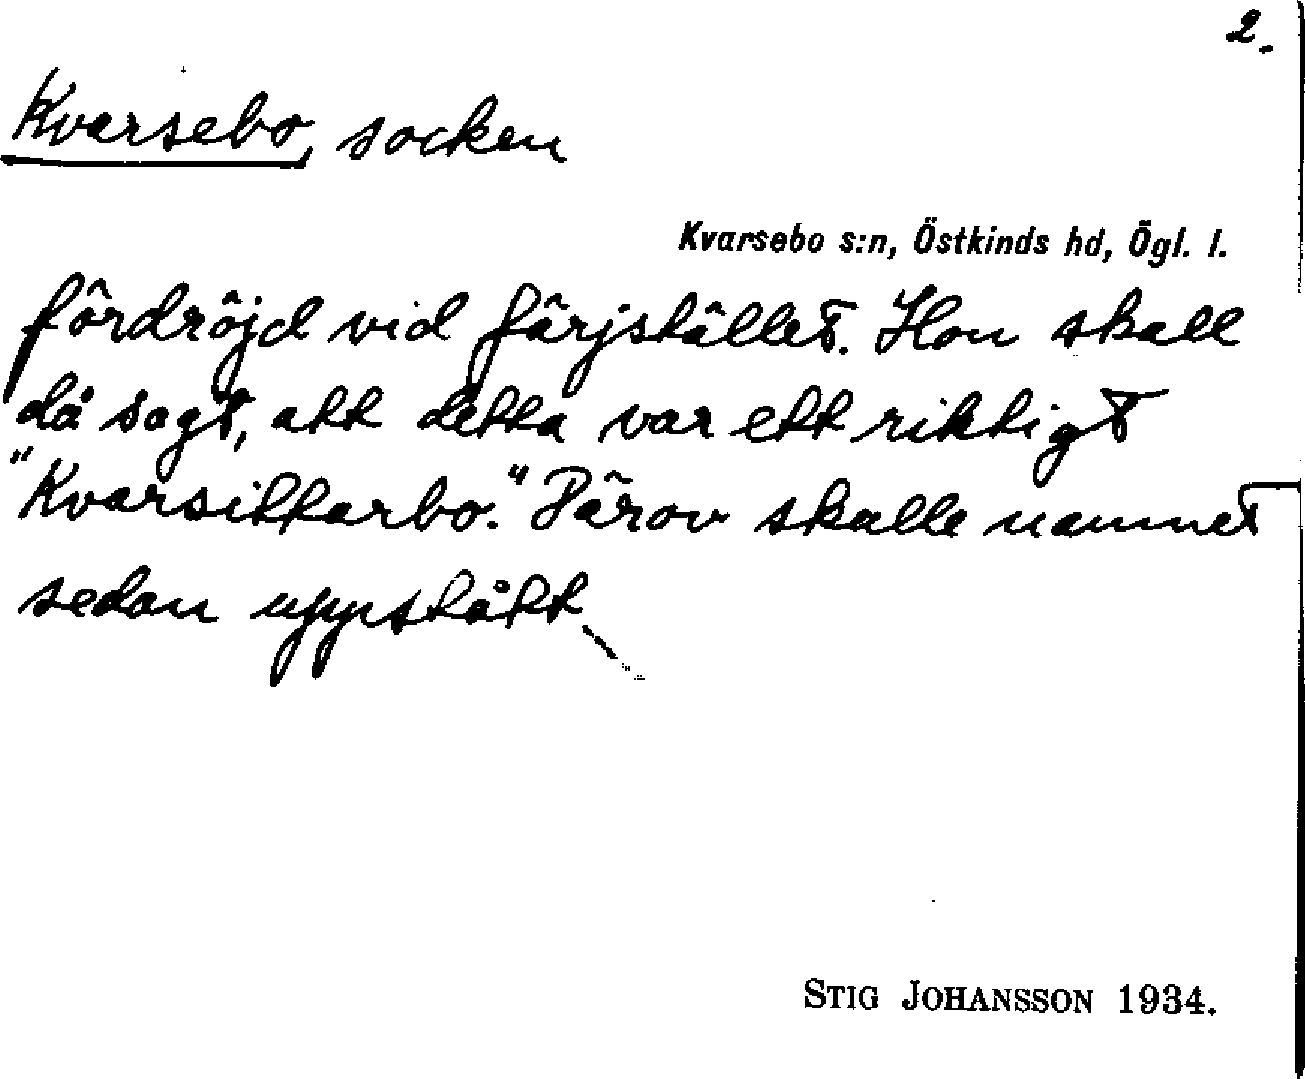 2.
Kvarsebo, socken
Kvarsebo s:n, Östkinds hd, Ögl. l.
fördröjd vid färjstället. Hon skall
då sagt, att detta var ett riktigt
"Kvarsittarbo." Därav skalle namnet
sedan uppstått.
STIG JOHANSSON 1934.